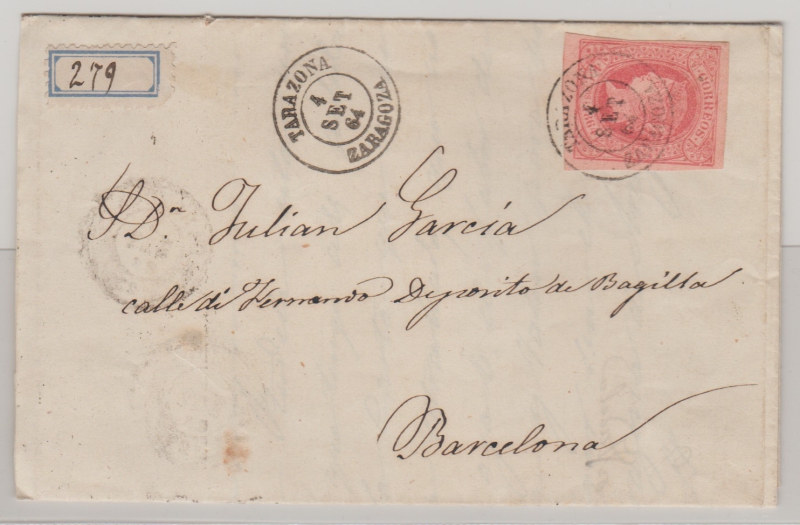 279
TARAZONA
4
SET
64
ZARAGOZA
CORREOS
TARAZONA
4
SET
S. Dn. Julian García
calle di Fernando Deposito de Bagilla
Barcelona